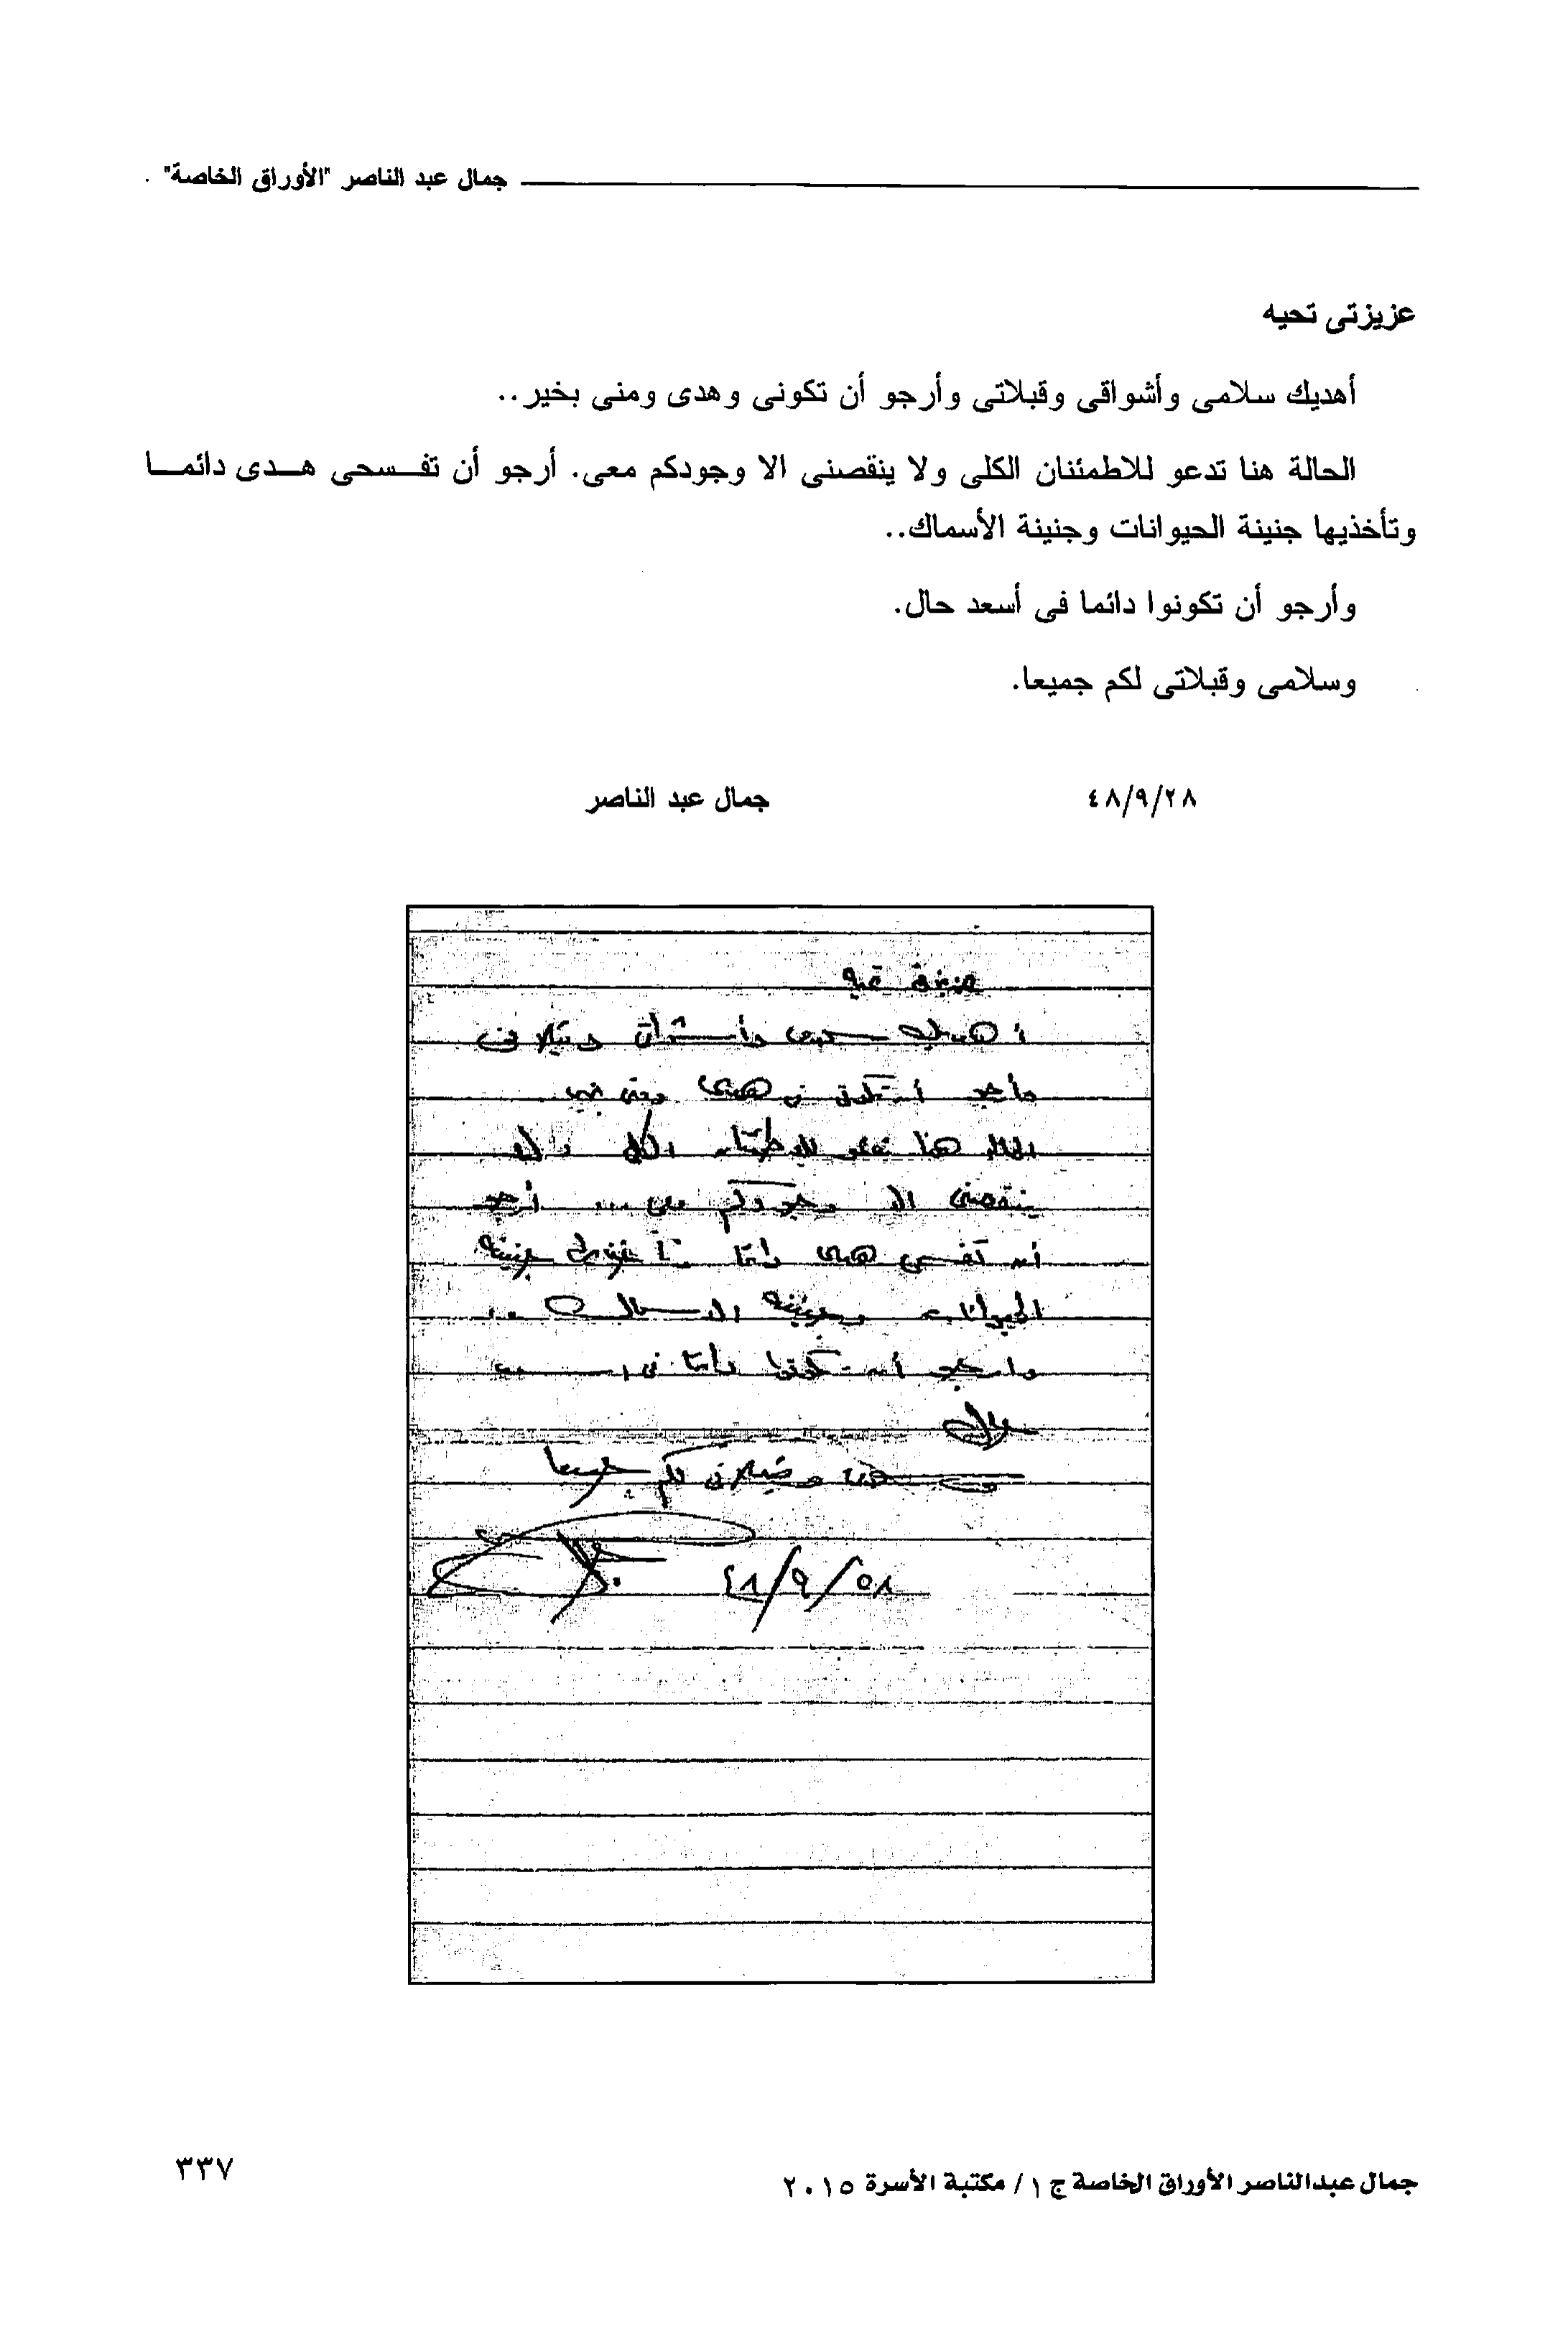 جمال عبد الناصر "الأوراق الخاصة"
عزيزتى تحيه
أهديك سلامى وأشواقى وقبلاتى وأرجو أن تكونى وهدى ومنى بخير..
الحالة هنا تدعو للاطمئنان الكلى ولا ينقصنى الا وجودكم معى. أرجو أن تفسحى هدى دائما
وتأخذيها جنينة الحيوانات وجنينة الأسماك..
وأرجو أن تكونوا دائما فى أسعد حال.
وسلامى وقبلاتى لكم جميعا.
٤٨/٩/٢٨ جمال عبد الناصر
عزيزتى تحيه
أهديك سلامى وأشواقى وقبلاتى
وأرجو أن تكونى وهدى ومنى بخير
الحالة هنا تدعو للاطمئنان الكلى ولا
ينقصنى الا وجودكم معى ... أرجو
أن تفسحى هدى دائما وتأخذيها جنينة
الحيوانات وجنينة الاسماك ..
وارجو أن تكونوا دائما فى اسعد
حال
وسلامى وقبلاتى لكم جميعا
٤٨/٩/٢٨ جمال
جمال عبدالناصر الأوراق الخاصة ج ١ / مكتبة الأسرة ٢٠١٥
٣٣٧